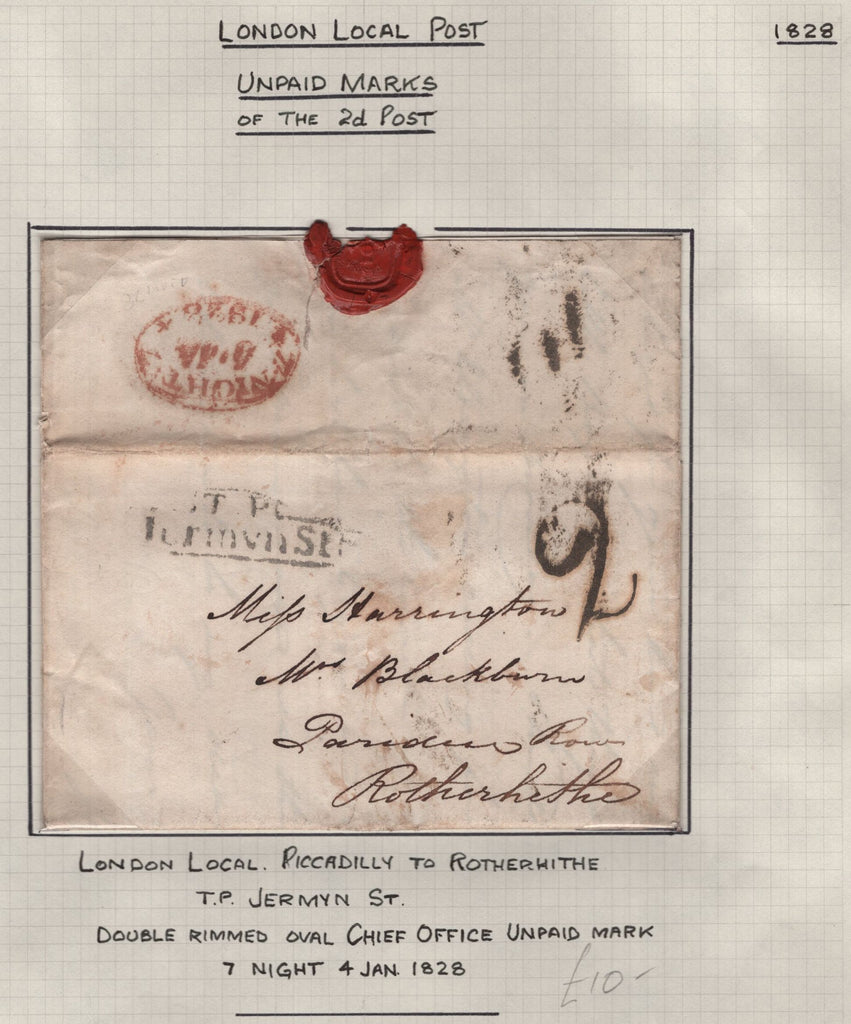 LONDON LOCAL POST
1828
UNPAID MARKS
OF THE 2d POST
7. NIGHT. 7
1828
T.P.
Jermyn St
2
Miss Harrington
Mrs. Blackburn
Row
Rotherhithe
LONDON LOCAL. PICCADILLY TO ROTHERHITHE
T.P. JERMYN ST.
DOUBLE RIMMED OVAL CHIEF OFFICE UNPAID MARK
7 NIGHT 4 JAN. 1828
£10-